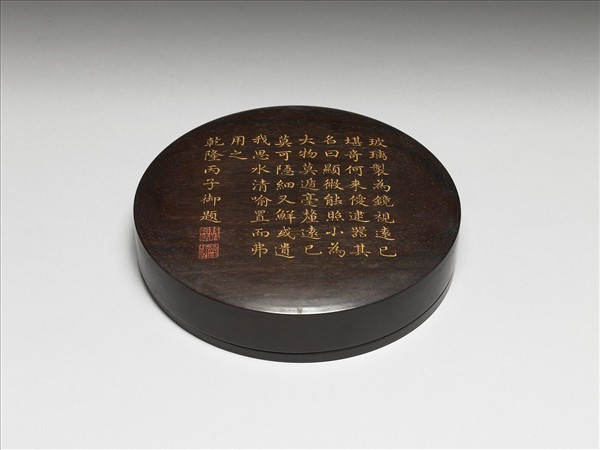 玻璃製為鏡視遠已
堪奇何来僾逮器其
名曰顯微能照小為
大物莫遁毫釐遠已
莫可隱細又鮮或遺
我思水清喻置而弗
用之
乾隆丙子御題